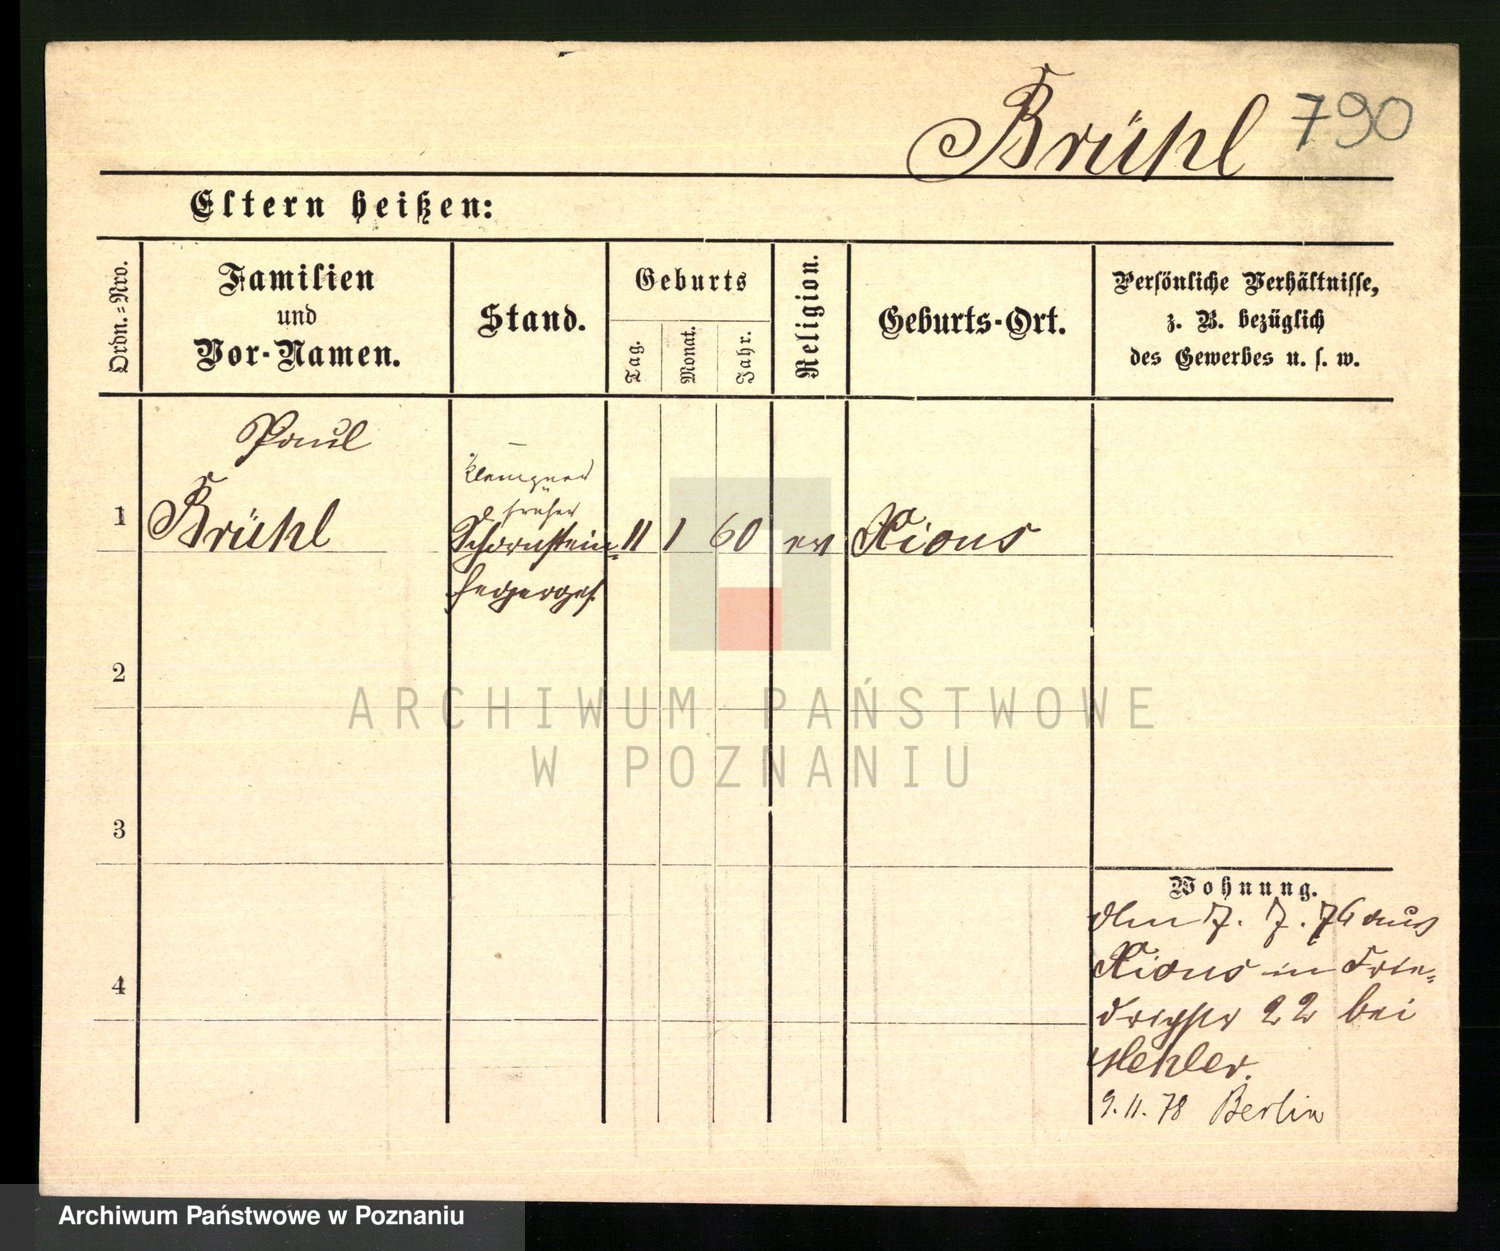 Brühl 790
Eltern heißen:
Ordn.-Nro.
Familien
und
Vor-Namen.
Stand.
Geburts
Tag.
Monat.
Jahr.
Religion.
Geburts-Ort.
Persönliche Verhältnisse,
z. B. bezüglich
des Gewerbes u. s. w.
Paul
Klempner
früher
1 Brühl Schornstein= 11 1 60 ev Xions
fegerges.
2
3
4
ARCHIWUM PAŃSTWOWE
W POZNANIU
Wohnung.
den 7. 7. 76 aus
Xions in Frie=
drichstr 22 bei
Mehler.
9. 11. 78 Berlin
Archiwum Państwowe w Poznaniu